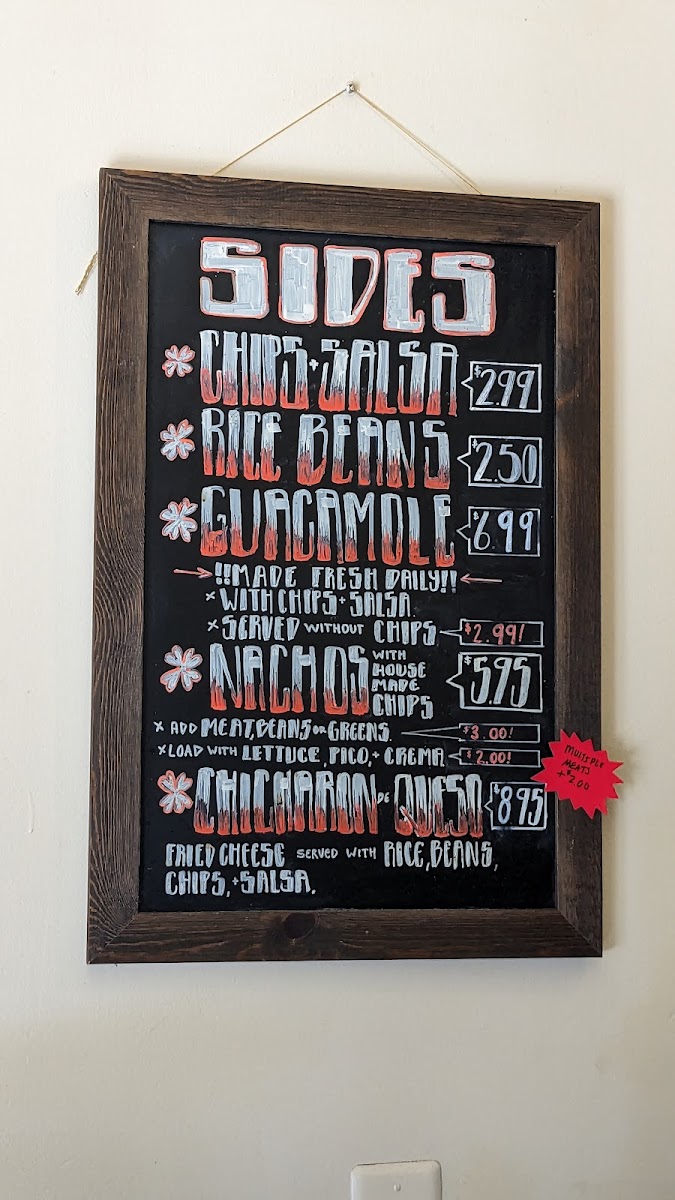 SIDES
CHIPS + SALSA $2.99
RICE BEANS $2.50
GUACAMOLE $6.99
!!MADE FRESH DAILY!!
x WITH CHIPS + SALSA
x SERVED WITHOUT CHIPS $2.99!
NACHOS WITH HOUSE MADE CHIPS $5.95
x ADD MEAT, BEANS OR GREENS $3.00!
x LOAD WITH LETTUCE, PICO, + CREMA $2.00!
MULTIPLE
MEATS
+$2.00
CHICHARON DE QUESO $8.95
FRIED CHEESE SERVED WITH RICE, BEANS,
CHIPS, + SALSA.